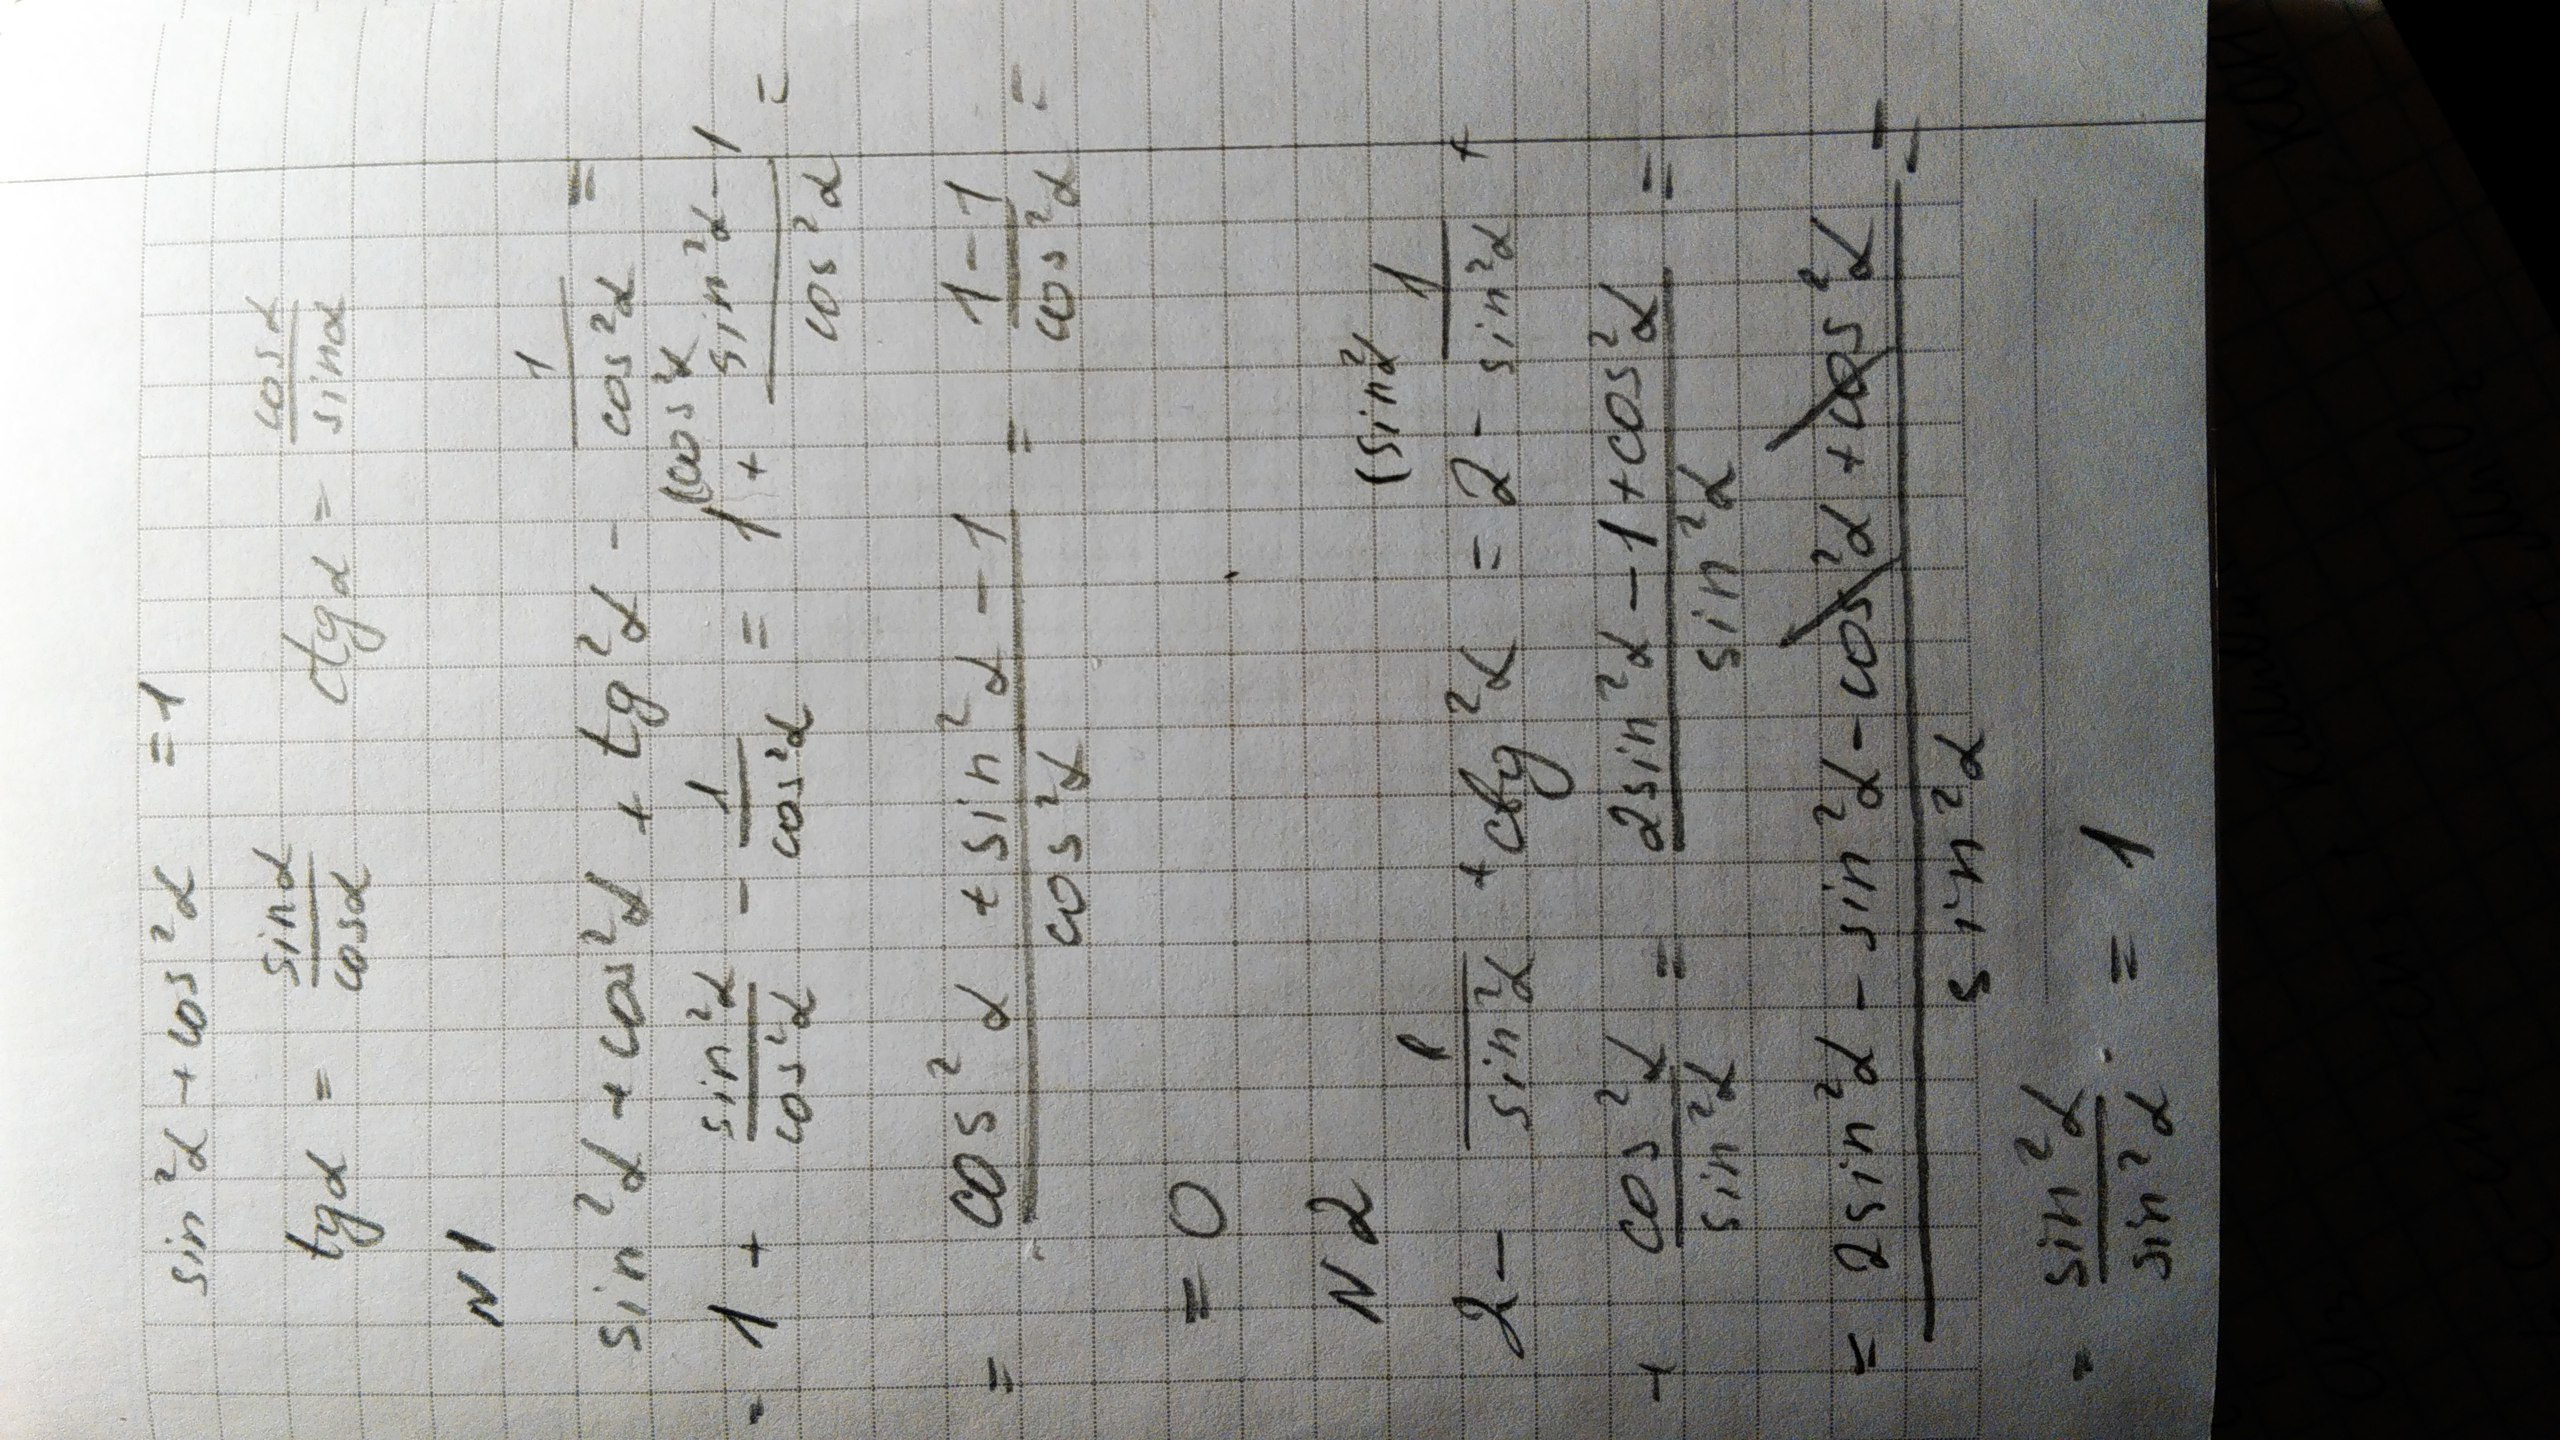 sin²α + cos²α = 1
tgα = sinα/cosα ctgα = cosα/sinα
N1
sin²α + cos²α + tg²α - 1/cos²α =
= 1 + sin²α/cos²α - 1/cos²α = 1 (cos²α + sin²α-1/cos²α =
= cos²α + sin²α - 1/cos²α = 1-1/cos²α =
= 0
N2
2 - 1/sin²α + ctg²α = 2 (sin²α - 1/sin²α +
+ cos²α/sin²α = 2sin²α - 1 + cos²α/sin²α =
= 2sin²α - sin²α - cos²α + cos²α/sin²α =
= sin²α/sin²α = 1